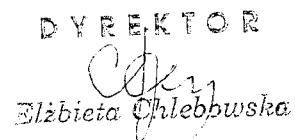 DYREKTOR
Elżbieta Chlebowska